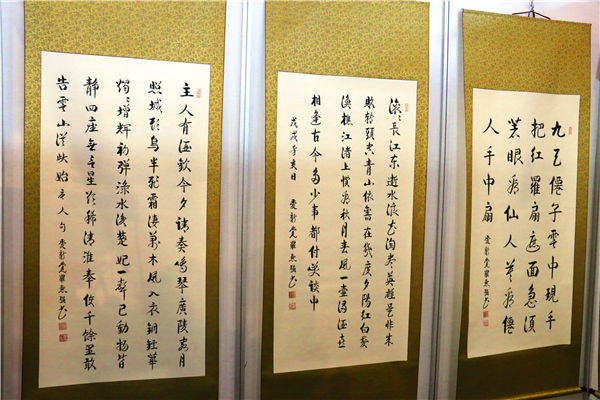 主人有酒歡今夕請奏鳴琴廣陵客月
照城頭烏半飛霜淒萬木風入衣銅鑪華
燭〻增輝初彈淥水後楚妃一聲已動物皆
靜四座無言星欲稀清淮奉使千餘里敢
告雲山從此始 唐人句 愛新覺羅 書
滾〻長江東逝水浪花淘盡英雄是非成
敗轉頭空青山依舊在幾度夕陽紅白髮
漁樵江渚上慣看秋月春風一壺濁酒喜
相逢古今多少事都付笑談中
戊戌年冬日 愛新覺羅 書
九天僊子雲中現手
把紅羅扇遮面急須
著眼看仙人莫看僊
人手中扇 愛新覺羅 書